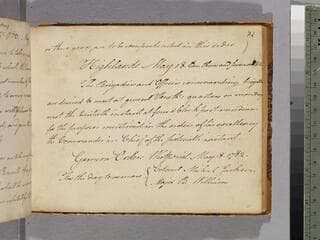 71
or three years are to be comprehended in this order
Highlands May 18. One thousand
The Brigadiers and Officers commanding brigades
are desired to meet at general Heath's quarters on
next the twentieth instant at four o'clock post meridiem
for the purposes mentioned in the orders of his excellency
the Commander in Chief of the sixteenth instant.
Garrison Orders Westpoint May 18. 1782.
For the day tomorrow { Colonel Michael Jackson
Major B.